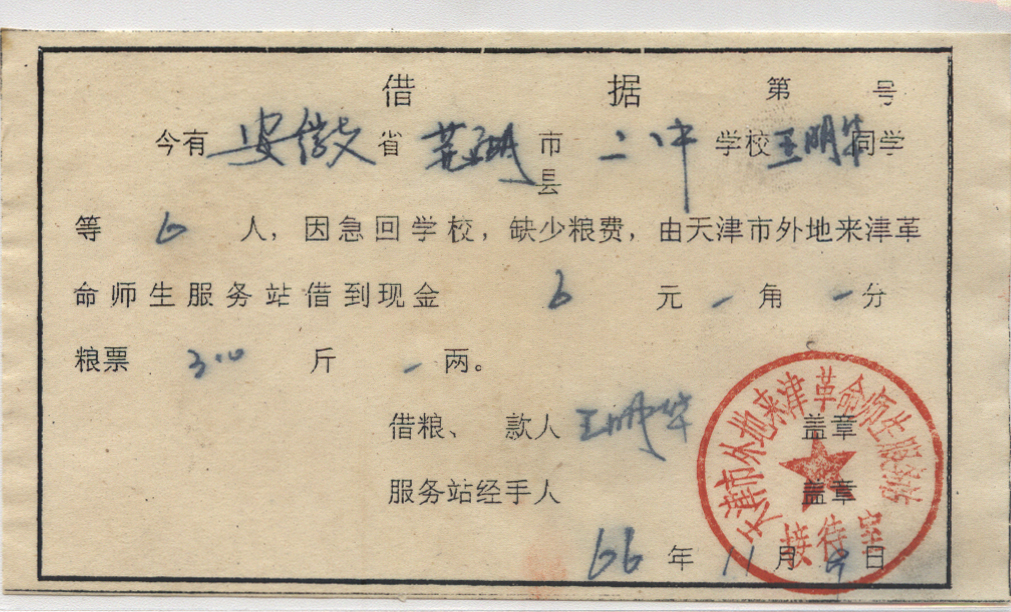 借据 第 号
今有安徽省芜湖市县二中学校王明华同学
等6人，因急回学校，缺少粮费，由天津市外地来津革
命师生服务站借到现金6元-角-分
粮票 斤-两。
借粮、款人王明华 盖章
服务站经手人 盖章
66年11月 日
天津市外地来津革命师生服务站
接待室